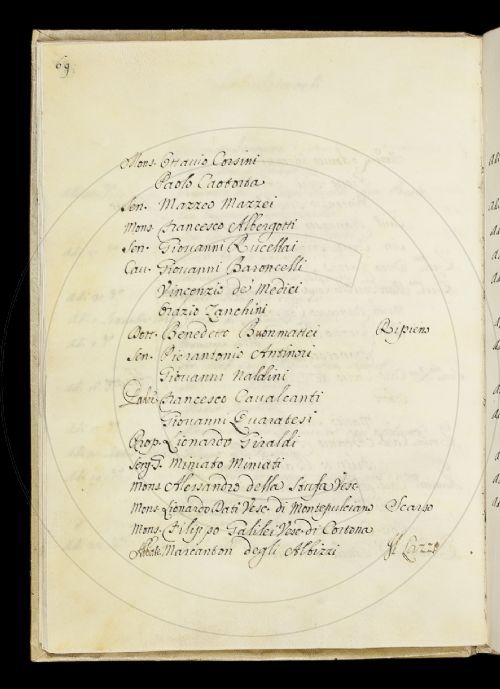 69
Mons. Ottavio Corsini
Paolo
Sen. Mazzeo Mazzei
Mons. Francesco Albergotti
Sen. Giovanni Rucellai
Cav. Giovanni Baroncelli
Vincenzio de Medici
Orazio Zanchini
Dott. Benedetto Buonmattei Ripieno
Sen. Pierantonio Antinori
Giovanni Naldini
Francesco Cavalcanti
Giovanni Quaratesi
Prop. Lionardo Giraldi
Miniato Miniati
Mons. Alessandro della Stufa Vesc.
Mons. Lionardo Dati Vesc. di Montepulciano Scarso
Mons. Filippo Galilei Vesc. di Cortona
Abbate Marcanton degli Albizzi Il